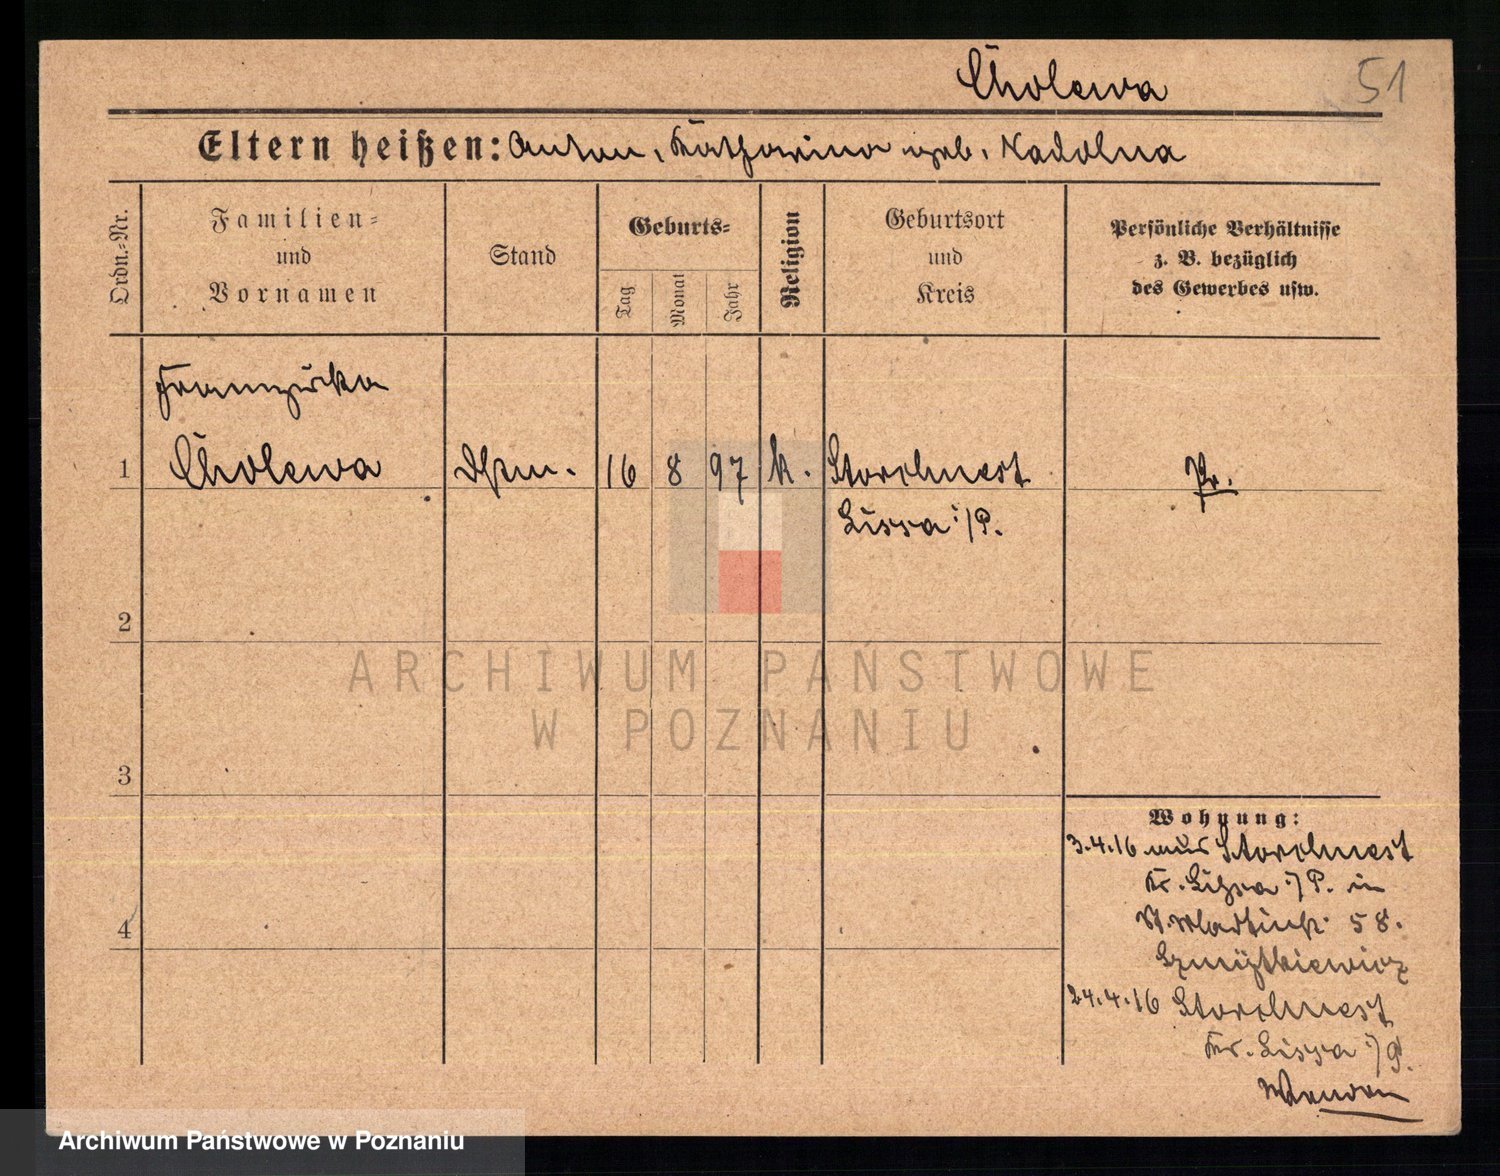 Cholewa 51
Eltern heißen: Anton, Katharina geb. Nadolna
Ordn.-Nr.
Familien-
und
Vornamen
Stand
Geburts-
Tag
Monat
Jahr
Religion
Geburtsort
und
Kreis
Persönliche Verhältnisse
z. B. bezüglich
des Gewerbes usw.
Franziska
1 Cholewa 16 8 97 k. Storchnest Pr.
Lissa i/P.
2
ARCHIWUM PAŃSTWOWE
W POZNANIU
3
Wohnung:
3.4.16 aus Storchnest
Kr. Lissa i/P. in
St. Martinstr. 58.
4
24.4.16 Storchnest
Kr. Lissa i/P.
Archiwum Państwowe w Poznaniu